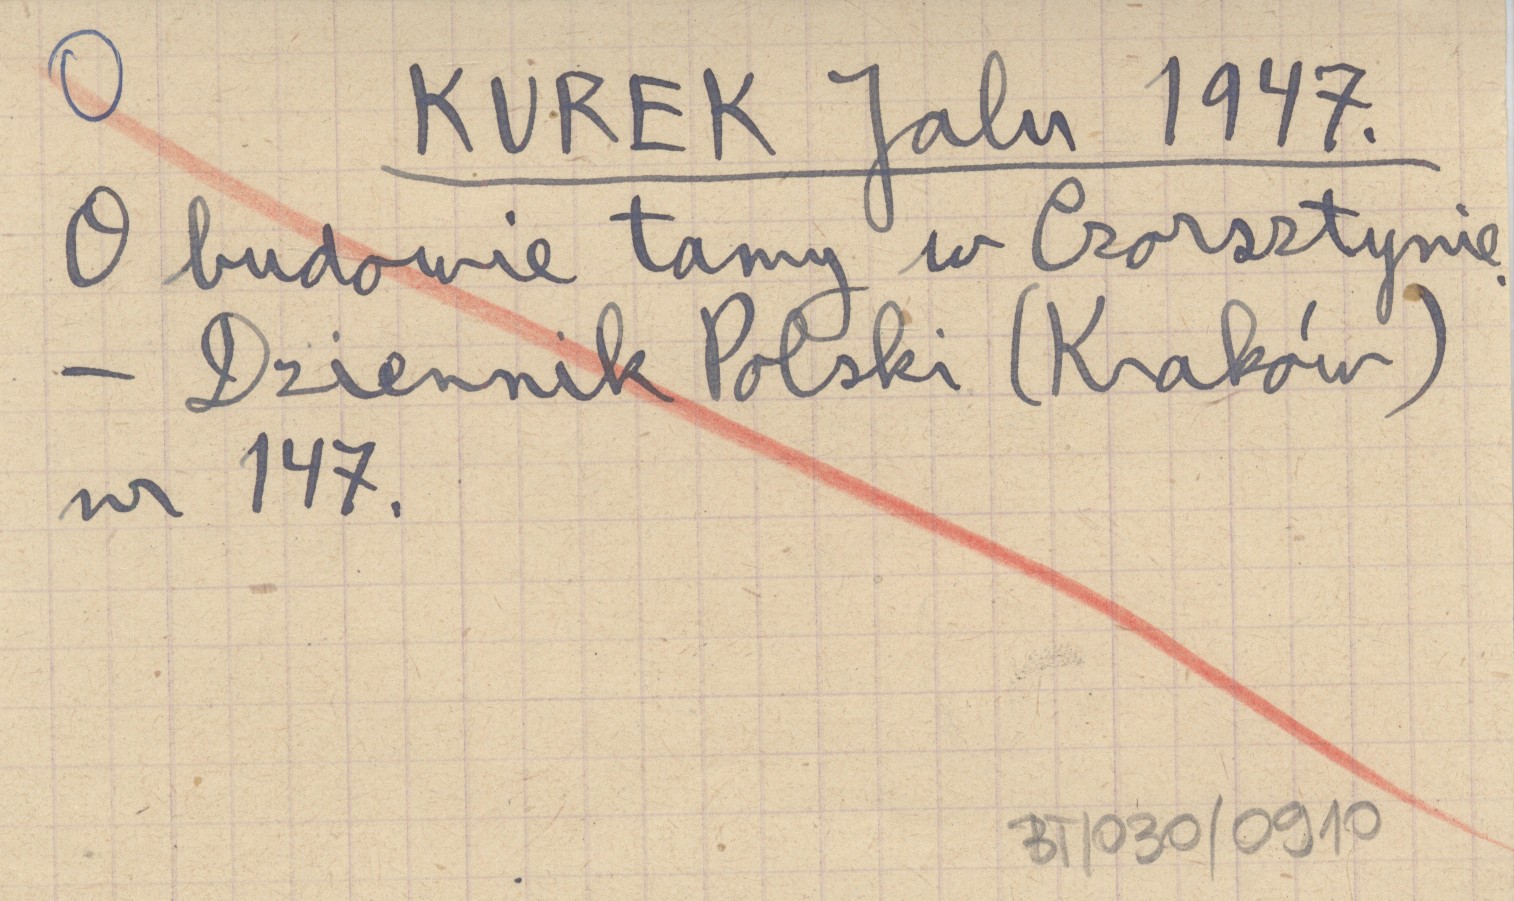 O
KUREK Jalu 1947.
O budowie tamy w Czorsztynie.
— Dziennik Polski (Kraków)
nr 147.
BT/030/0910